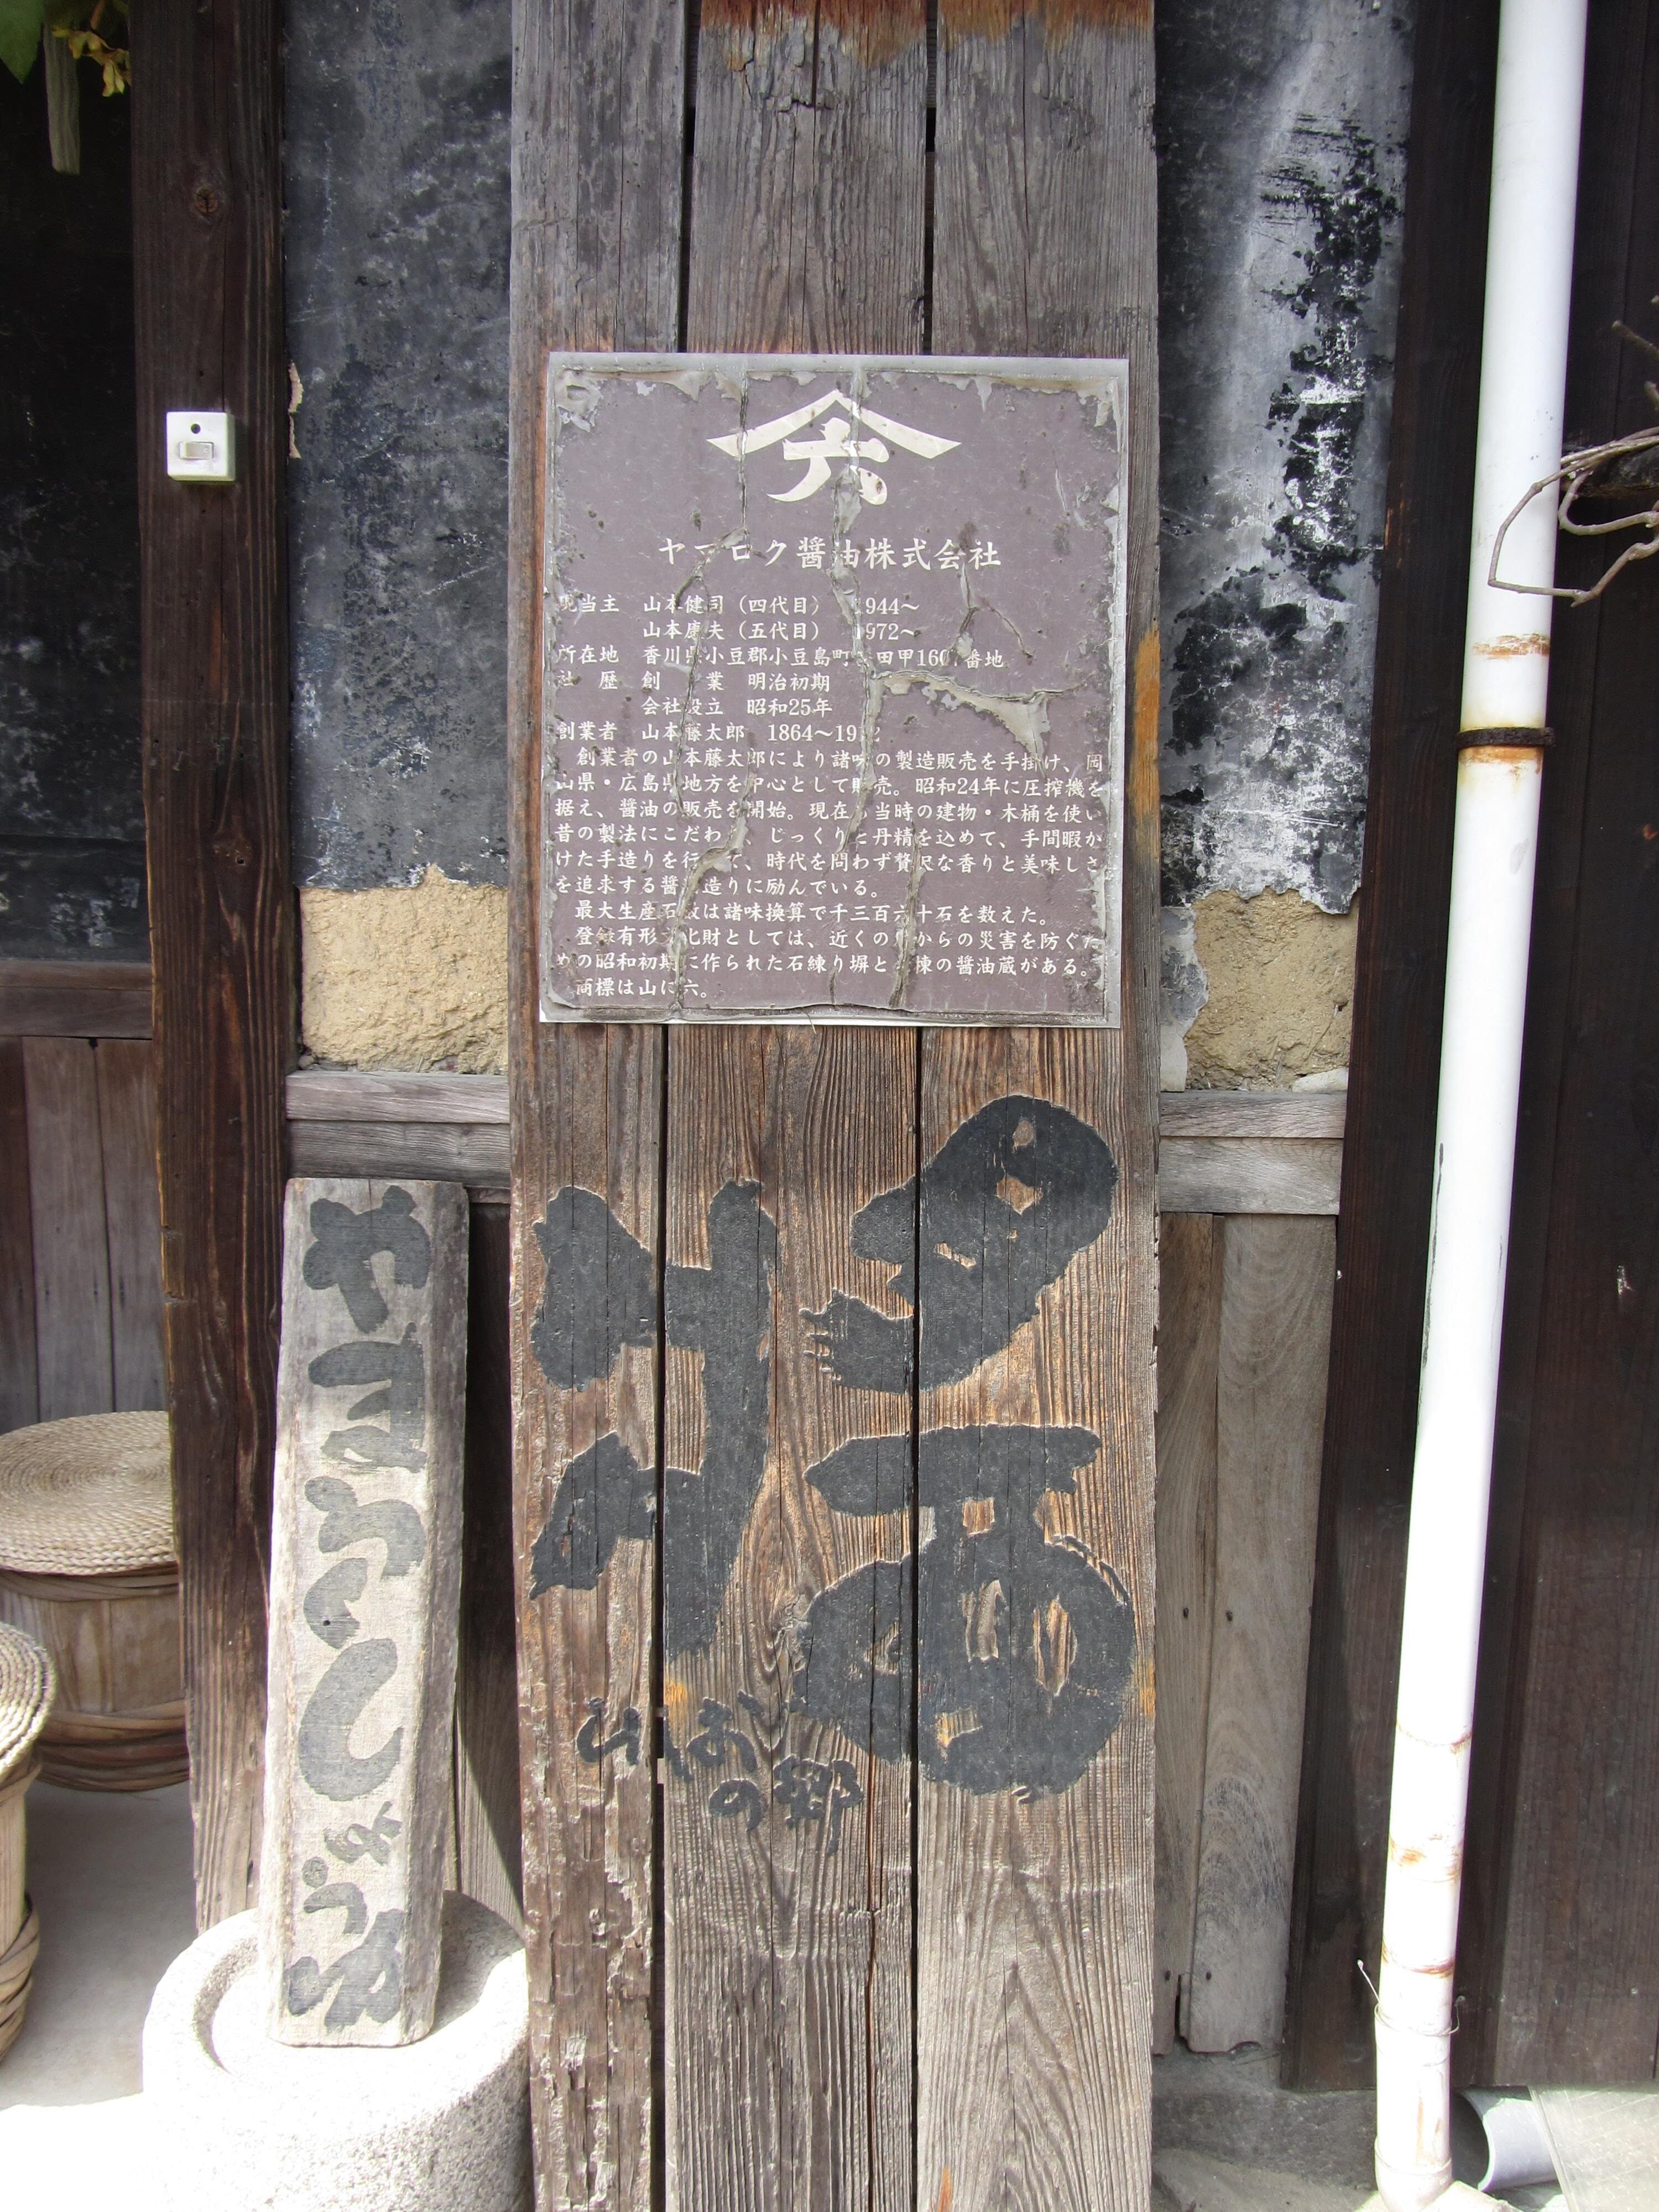 ヤマロク醤油株式会社
現当主 山本健司（四代目） 1944～
山本康夫（五代目） 1972～
所在地 香川県小豆郡小豆島町 田甲1607番地
社 歴 創 業 明治初期
会社設立 昭和25年
創業者 山本藤太郎 1864～19 2
創業者の山本藤太郎により諸味の製造販売を手掛け、岡
山県・広島県地方を中心として販売。昭和24年に圧搾機を
据え、醤油の販売を開始。現在 当時の建物・木桶を使い
昔の製法にこだわり、じっくりと丹精を込めて、手間暇か
けた手造りを行 て、時代を問わず贅沢な香りと美味しさ
を追求する醤油造りに励んでいる。
最大生産石数は諸味換算で千三百六十石を数えた。
登録有形文化財としては、近くの からの災害を防ぐた
めの昭和初期に作られた石練り塀と 棟の醤油蔵がある。
商標は山に六。
醤
ひしおの郷
やまろくしょうゆ